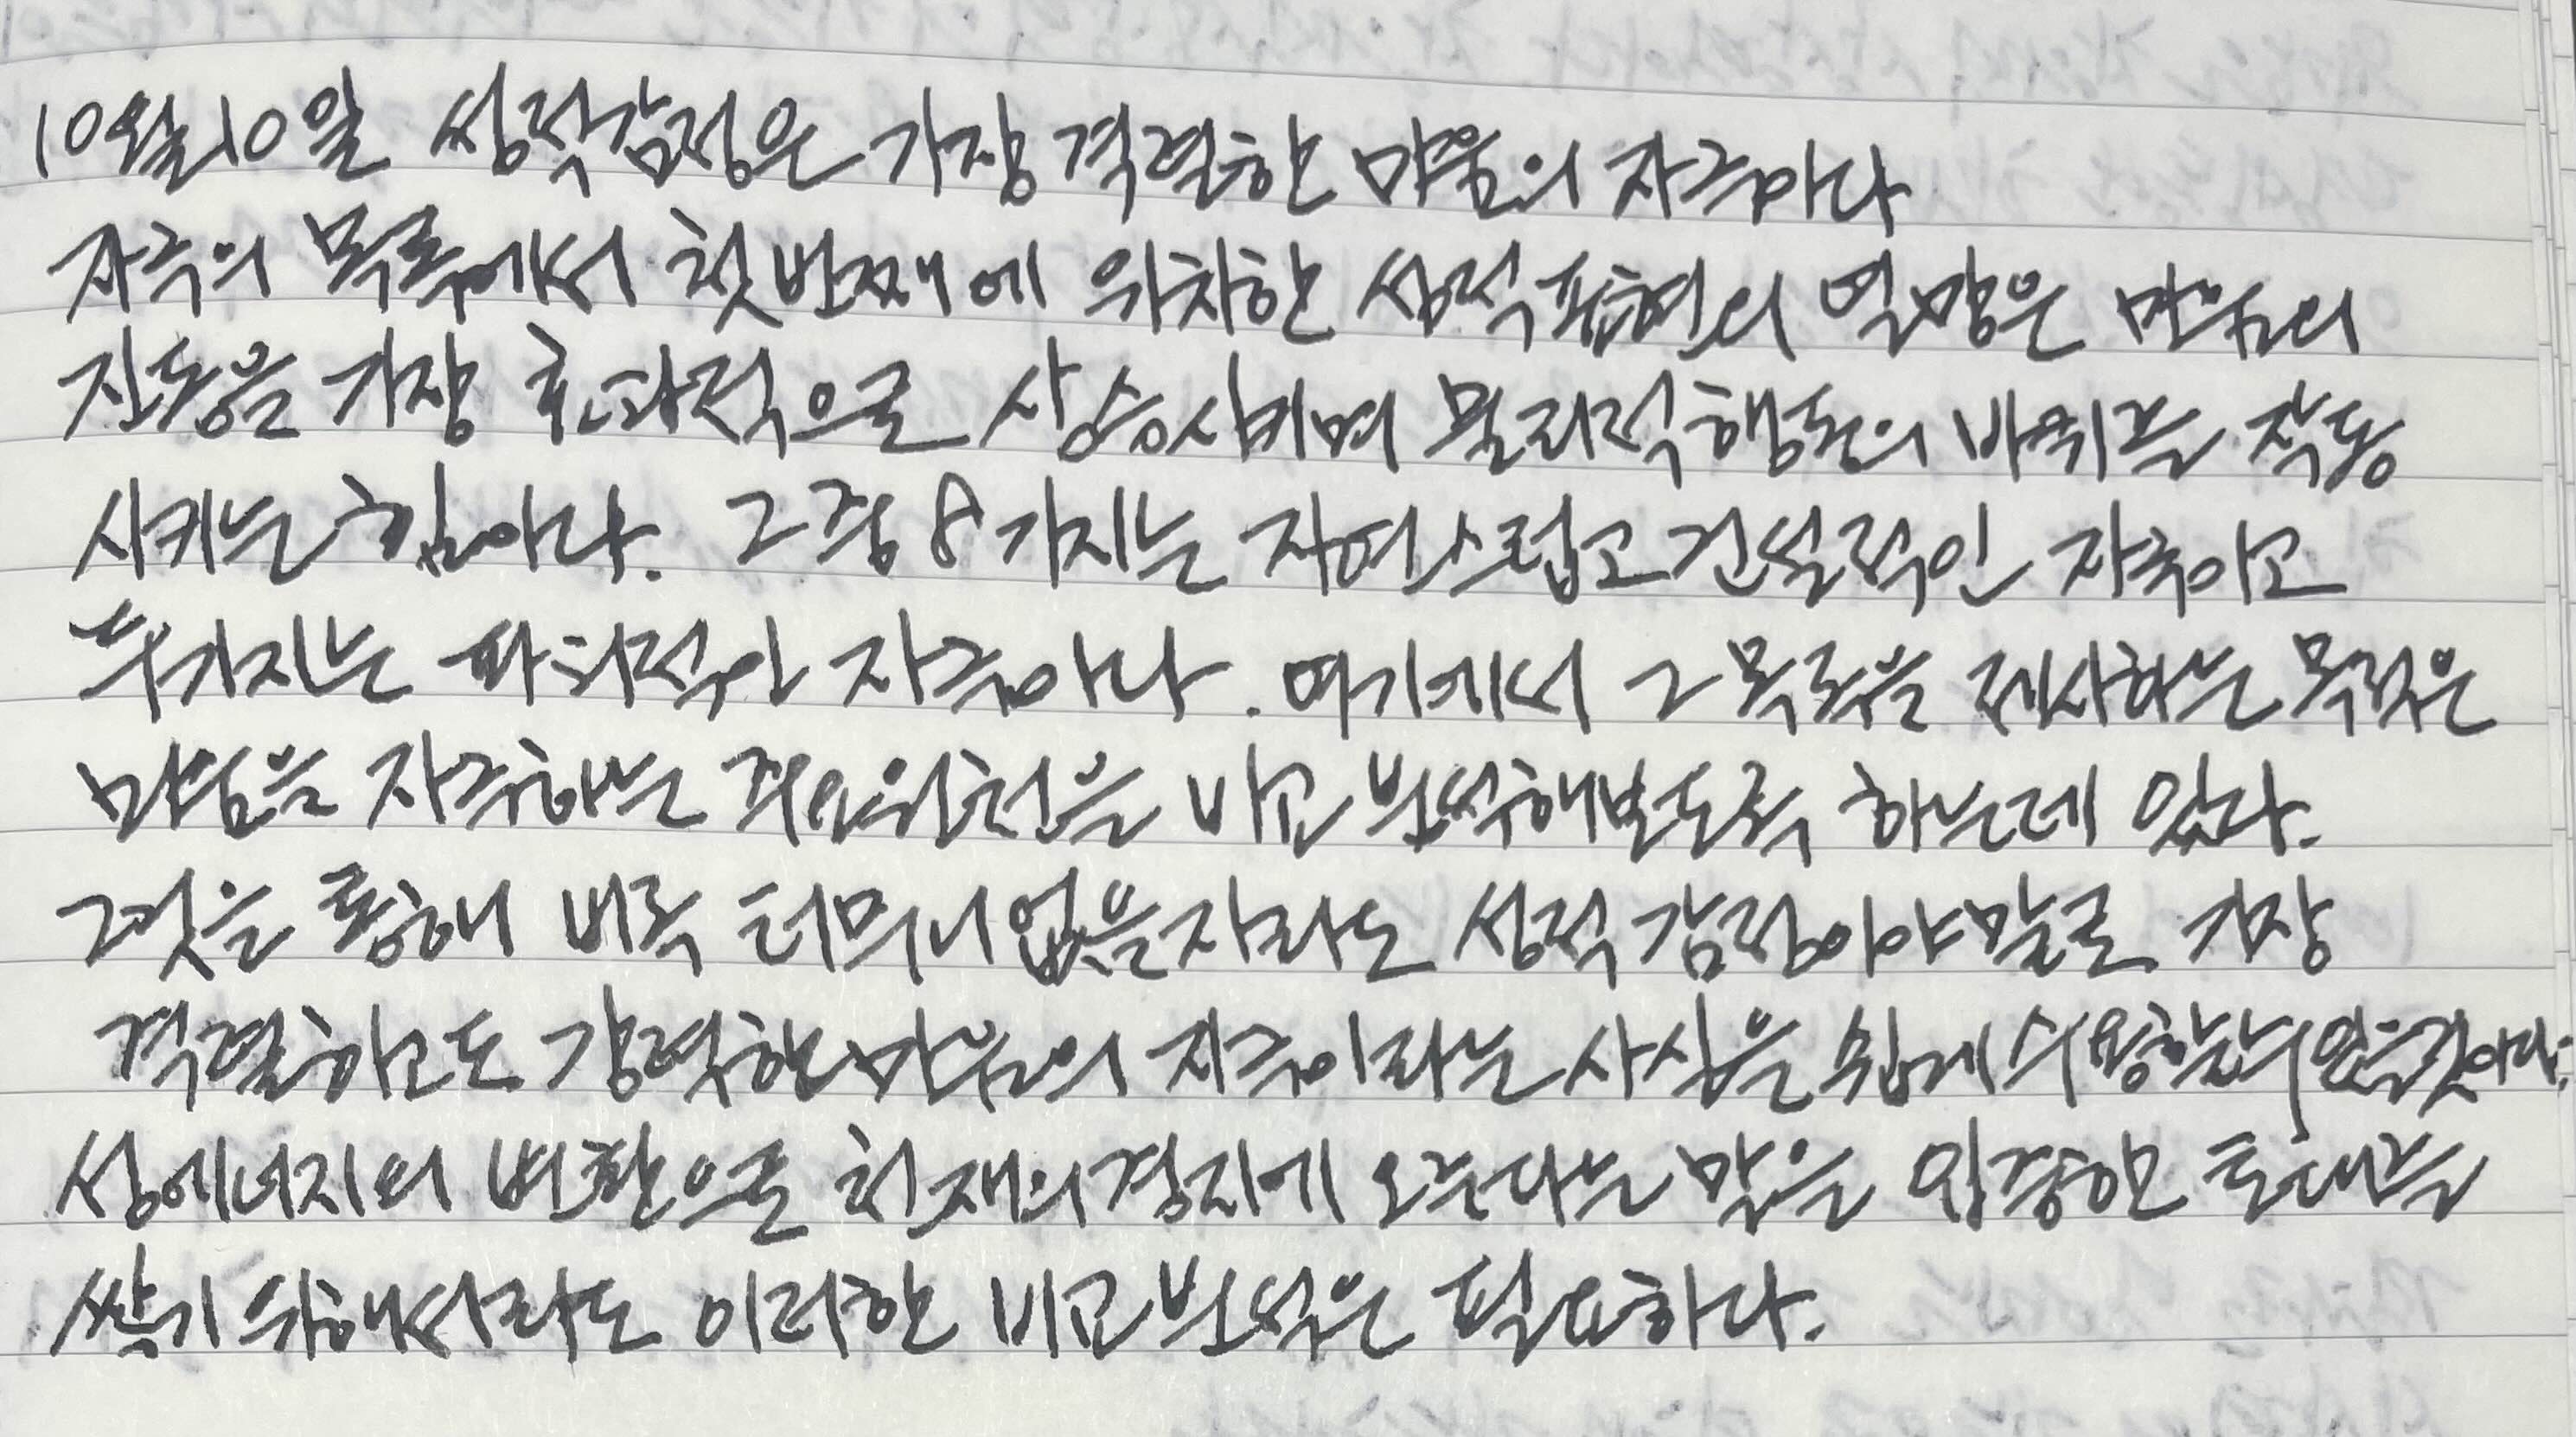 10월10일 성적감정은 가장 격렬한 마음의 자극이다
자극의 목록에서 첫번째에 위치한 성적표현의 열망은 마음의
진동을 가장 효과적으로 상승시키며 물리적행동의 바퀴를 작동
시키는 힘이다. 그중 8가지는 자연스럽고 건설적인 자극이고
두가지는 파괴적인 자극이다. 여기에서 그 목록을 제시하는 목적은
마음을 자극하는 주요원천을 비교 분석해보도록 하는데 있다.
그것을 통해 비록 터무니없을지라도 성적 감정이야말로 가장
격렬하고도 강력한 마음의 자극이라는 사실을 쉽게 수용할수 있을것이다.
성에너지의 변환으로 천재의경지에 오른다는 말을 입증할 토대를
쌓기 위해서라도 이러한 비교분석은 필요하다.